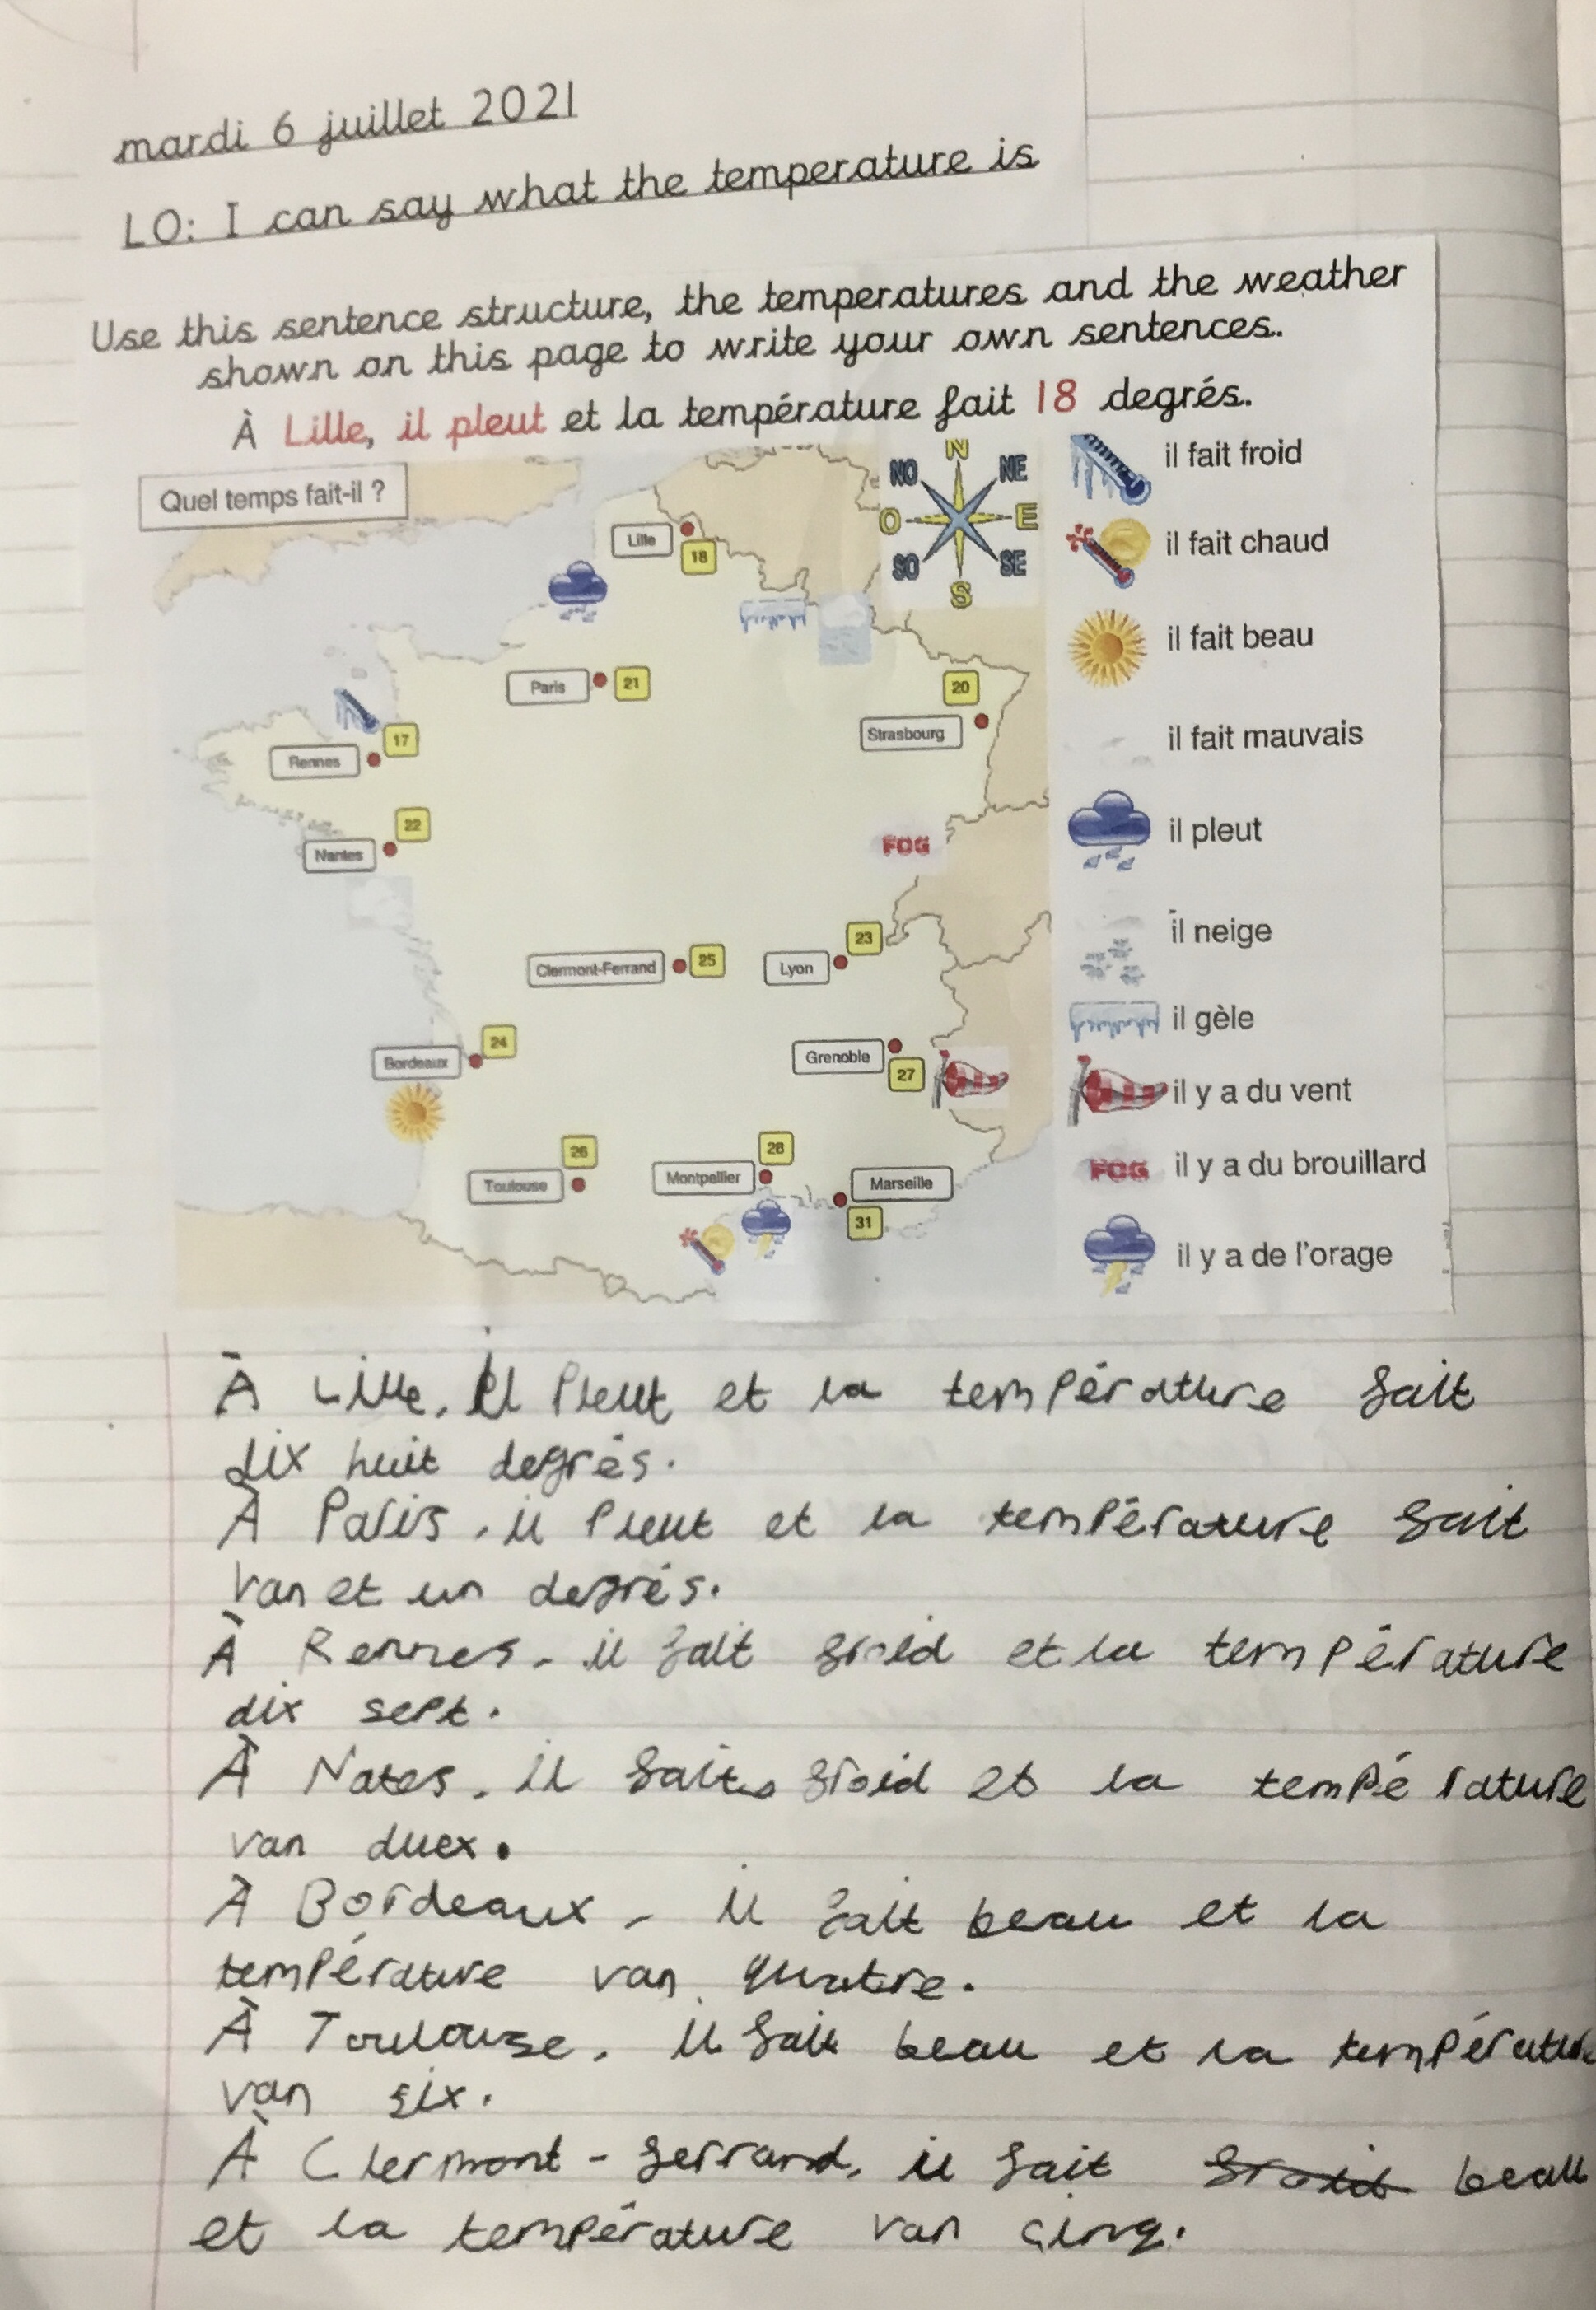 mardi 6 juillet 2021
LO: I can say what the temperature is
Use this sentence structure, the temperatures and the weather
shown on this page to write your own sentences.
À Lille, il pleut et la température fait 18 degrés.
Quel temps fait-il ?
N
NO
NE
O
E
SO
SE
S
Lille
18
Paris
21
20
Strasbourg
17
Rennes
22
Nantes
FOG
Clermont-Ferrand
25
Lyon
23
24
Bordeaux
Grenoble
27
26
Toulouse
Montpellier
28
Marseille
31
il fait froid
il fait chaud
il fait beau
il fait mauvais
il pleut
il neige
il gèle
il y a du vent
FOG il y a du brouillard
il y a de l'orage
À Lille, il Pleut et la température fait
dix huit degrés.
À Paris, il Pleut et la température fait
van et un degrés.
À Rennes, il fait froid et la température
dix sept.
À Nates, il fait froid et la température
van duex.
À Bordeaux, il fait beau et la
température van quatre.
À Toulouse, il fait beau et la température
van six.
À Clermont-ferrand, il fait froid beau
et la température van cinq.